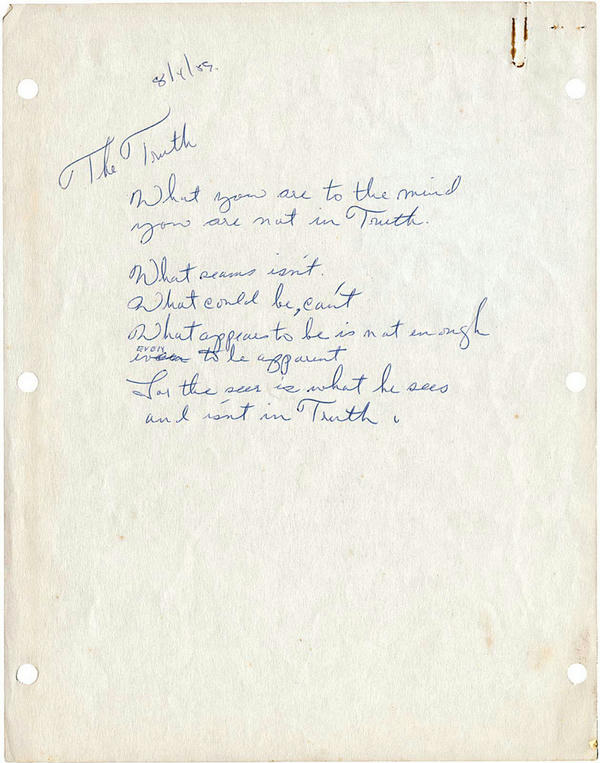 8/4/59.
The Truth
What you are to the mind
you are not in Truth.
What seams isn't.
What could be, can't
What appears to be is not enough
even to be apparent
For the seer is what he sees
and isn't in Truth.